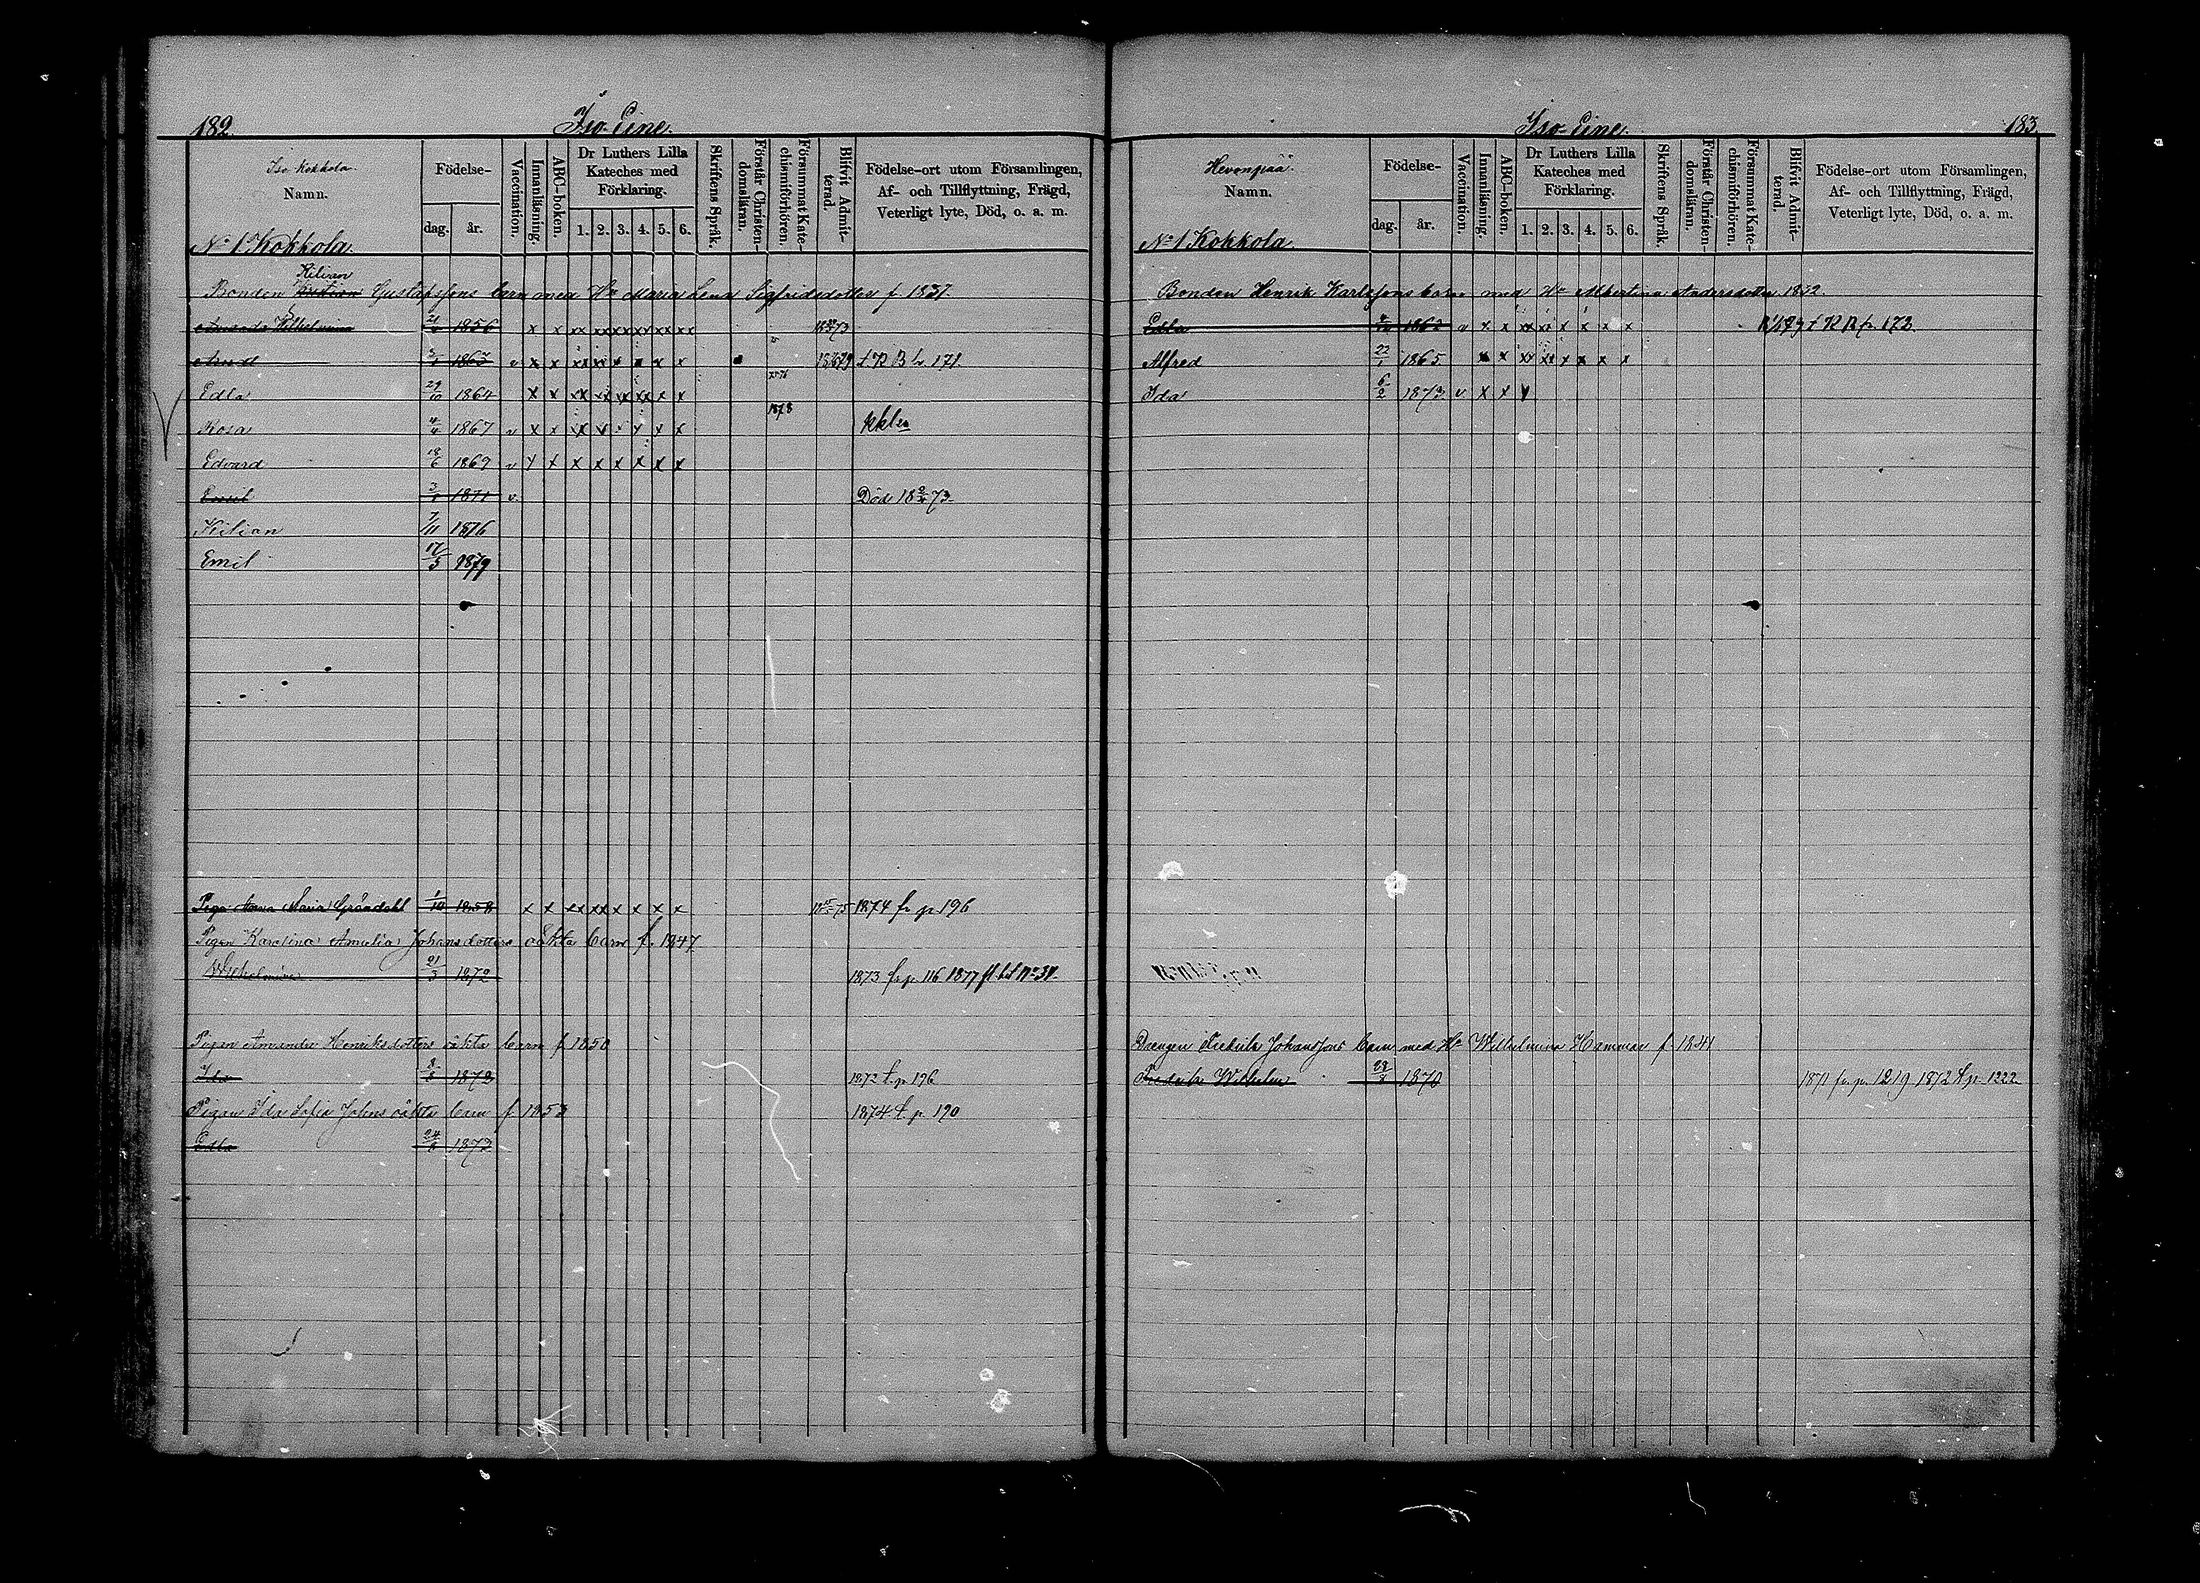 182. Iso Eine.
Iso Kokkola.
Namn.
Födelse-
dag. år.
Vaccination.
Innanläsning.
ABC-boken.
Dr Luthers Lilla Kateches med Förklaring.
1. 2. 3. 4. 5. 6.
Skriftens Språk.
Förstår Christen-domsläran.
Försummat Kate-chismiförhören.
Blifvit Admit-terad.
Födelse-ort utom Församlingen,
Af- och Tillflyttning, Frägd,
Veterligt lyte, Död, o. a. m.
No 1 Kokkola.
Kilian
Bonden Gustafssons barn med Hu Maria Lena Sigfridsdotter f 1837.
Amanda Wilhelmina 1856 x x xx xx xx xx xx xx
1863 v x x t. R B p. 171.
1876
Edla 29/10 1864 x x xx xx xx xx x x
1878
Rosa 4/4 1867 v x x x v x x x
Edvard 18/6 1869 v x x x x x x x x
Emil 3/1 1871 v Död 73.
Kilian 7/11 1876
Emil 17/5 1879
Pigan Anna Maria Gröndahl 1/10 1858 x x xx xx x x x x 75 1874 fr p 196
Pigan Karolina Amalia Johansdotters oäkta barn f. 1847
Wilhelmina 21/3 1872 1873 fr. p. 116 1877
Pigan Amanda Henriksdotters oäkta barn f 1850
Ida 8/8 1872 1872 t. p. 196
Pigan Ida Sofia Johns oäkta barn f 1853 1874 t. p. 190
Edla 24/8 1872
Iso-Eine. 183
Hevonpää.
Namn.
Födelse-
dag. år.
Vaccination.
Innanläsning.
ABC-boken.
Dr Luthers Lilla Kateches med Förklaring.
1. 2. 3. 4. 5. 6.
Skriftens Språk.
Förstår Christen-domsläran.
Försummat Kate-chismiförhören.
Blifvit Admit-terad.
Födelse-ort utom Församlingen,
Af- och Tillflyttning, Frägd,
Veterligt lyte, Död, o. a. m.
No 1 Kokkola.
Bonden Henrik Karlssons barn med Hu Albertina Andersdotter
Edla 1862 v x x xx xx x x x x t R B p. 172
Alfred 22/1 1865 x x xx xx x x x x
Ida 6/2 1873 v x x v
Drengen Fredrik Johanssons barn med Hu Wilhelmina Hammar f 1841
Fredrik Wilhelm 28/8 1870 1871 fr. p. 1219 1872 t. p. 1222